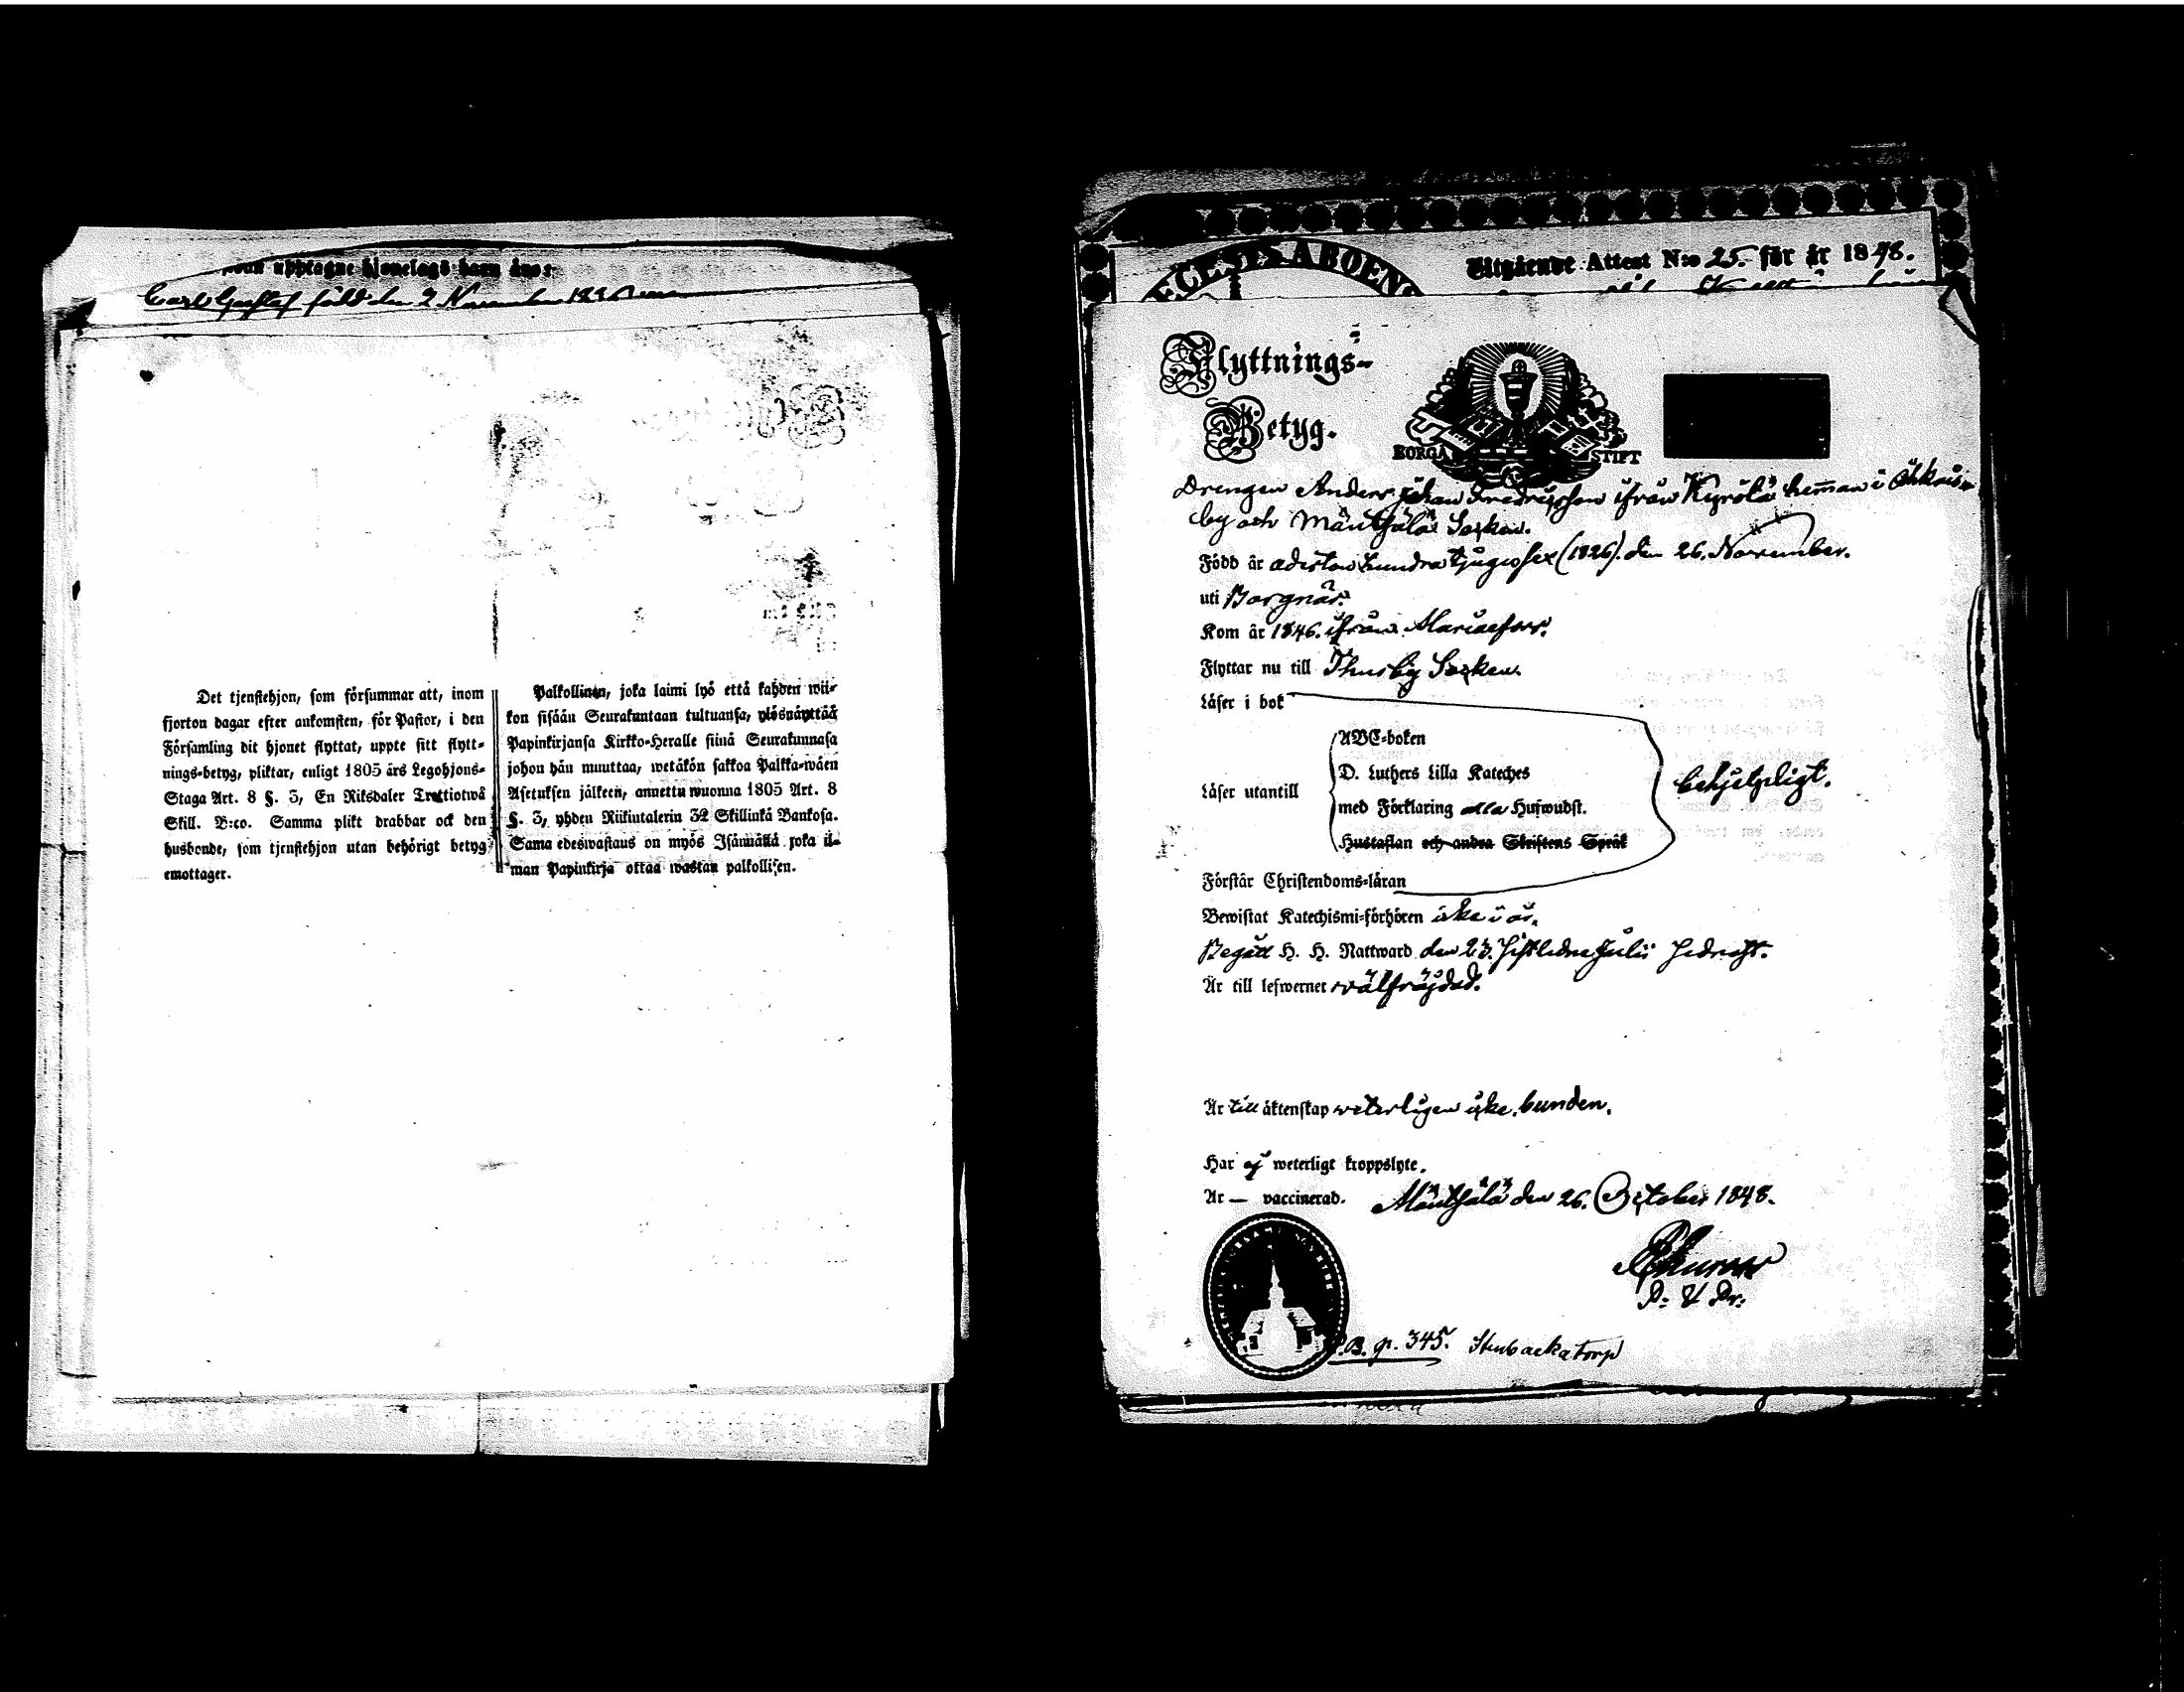 upptagne hjonelags barn äro:
Carl Gustaf född den 2 November
Det tjenstehjon, som försummar att, inom
fjorton dagar efter ankomsten, för Pastor, i den
Församling dit hjonet flyttat, uppte sitt flytt-
nings-betyg, pliktar, enligt 1805 års Legohjons-
Staga Art. 8 §. 3, En Riksdaler Trettiotwå
Skill. B:co. Samma plikt drabbar ock den
husbonde, som tjenstehjon utan behörigt betyg
emottager.
Palkollinen, joka laimi lyö että kahden wii-
kon sisään Seurakuntaan tultuansa, ylösnäyttää
Papinkirjansa Kirkko-Heralle siinä Seurakunnasa
johon hän muuttaa, wetäkön sakkoa Palkka-wäen
Asetuksen jälkeen, annettu wuonna 1805 Art. 8
§. 3, yhden Riikintalerin 32 Skillinkä Bankosa.
Sama edeswastaus on myös Isännällä joka il-
man Papinkirja ottaa wastan palkollisen.
ECLESIS ABOENS
Utgående Attest N:o 25. för år 1848.
Flyttnings-
Betyg.
BORGÅ STIFT
Drengen Anders Johan Andersson ifrån Kyrölä heman i
by och Mäntsälä Socken.
Född år adertonhundra tjugiosex (1826). den 26. November.
uti Borgnäs.
Kom år 1846. ifrån Mariaefors.
Flyttar nu till Thusby Socken.
Läser i bok
Läser utantill
ABC-boken
D. Luthers Lilla Kateches
med Förklaring alla Hufwudst.
Hustaflan och andra Skriftens Språk
behjelpligt.
Förstår Christendoms-läran
Bewistat Katechismi-förhören icke i år.
Begått H. H. Nattward den 23. sistledne Julii
Är till lefwernet wälfräjdad.
Är till äktenskap veterligen icke bunden.
Har ej weterligt kroppslyte.
Är — vaccinerad. Mäntsälä den 26. October 1848.
P: V Pr:
B. p. 345. Stubackatorp